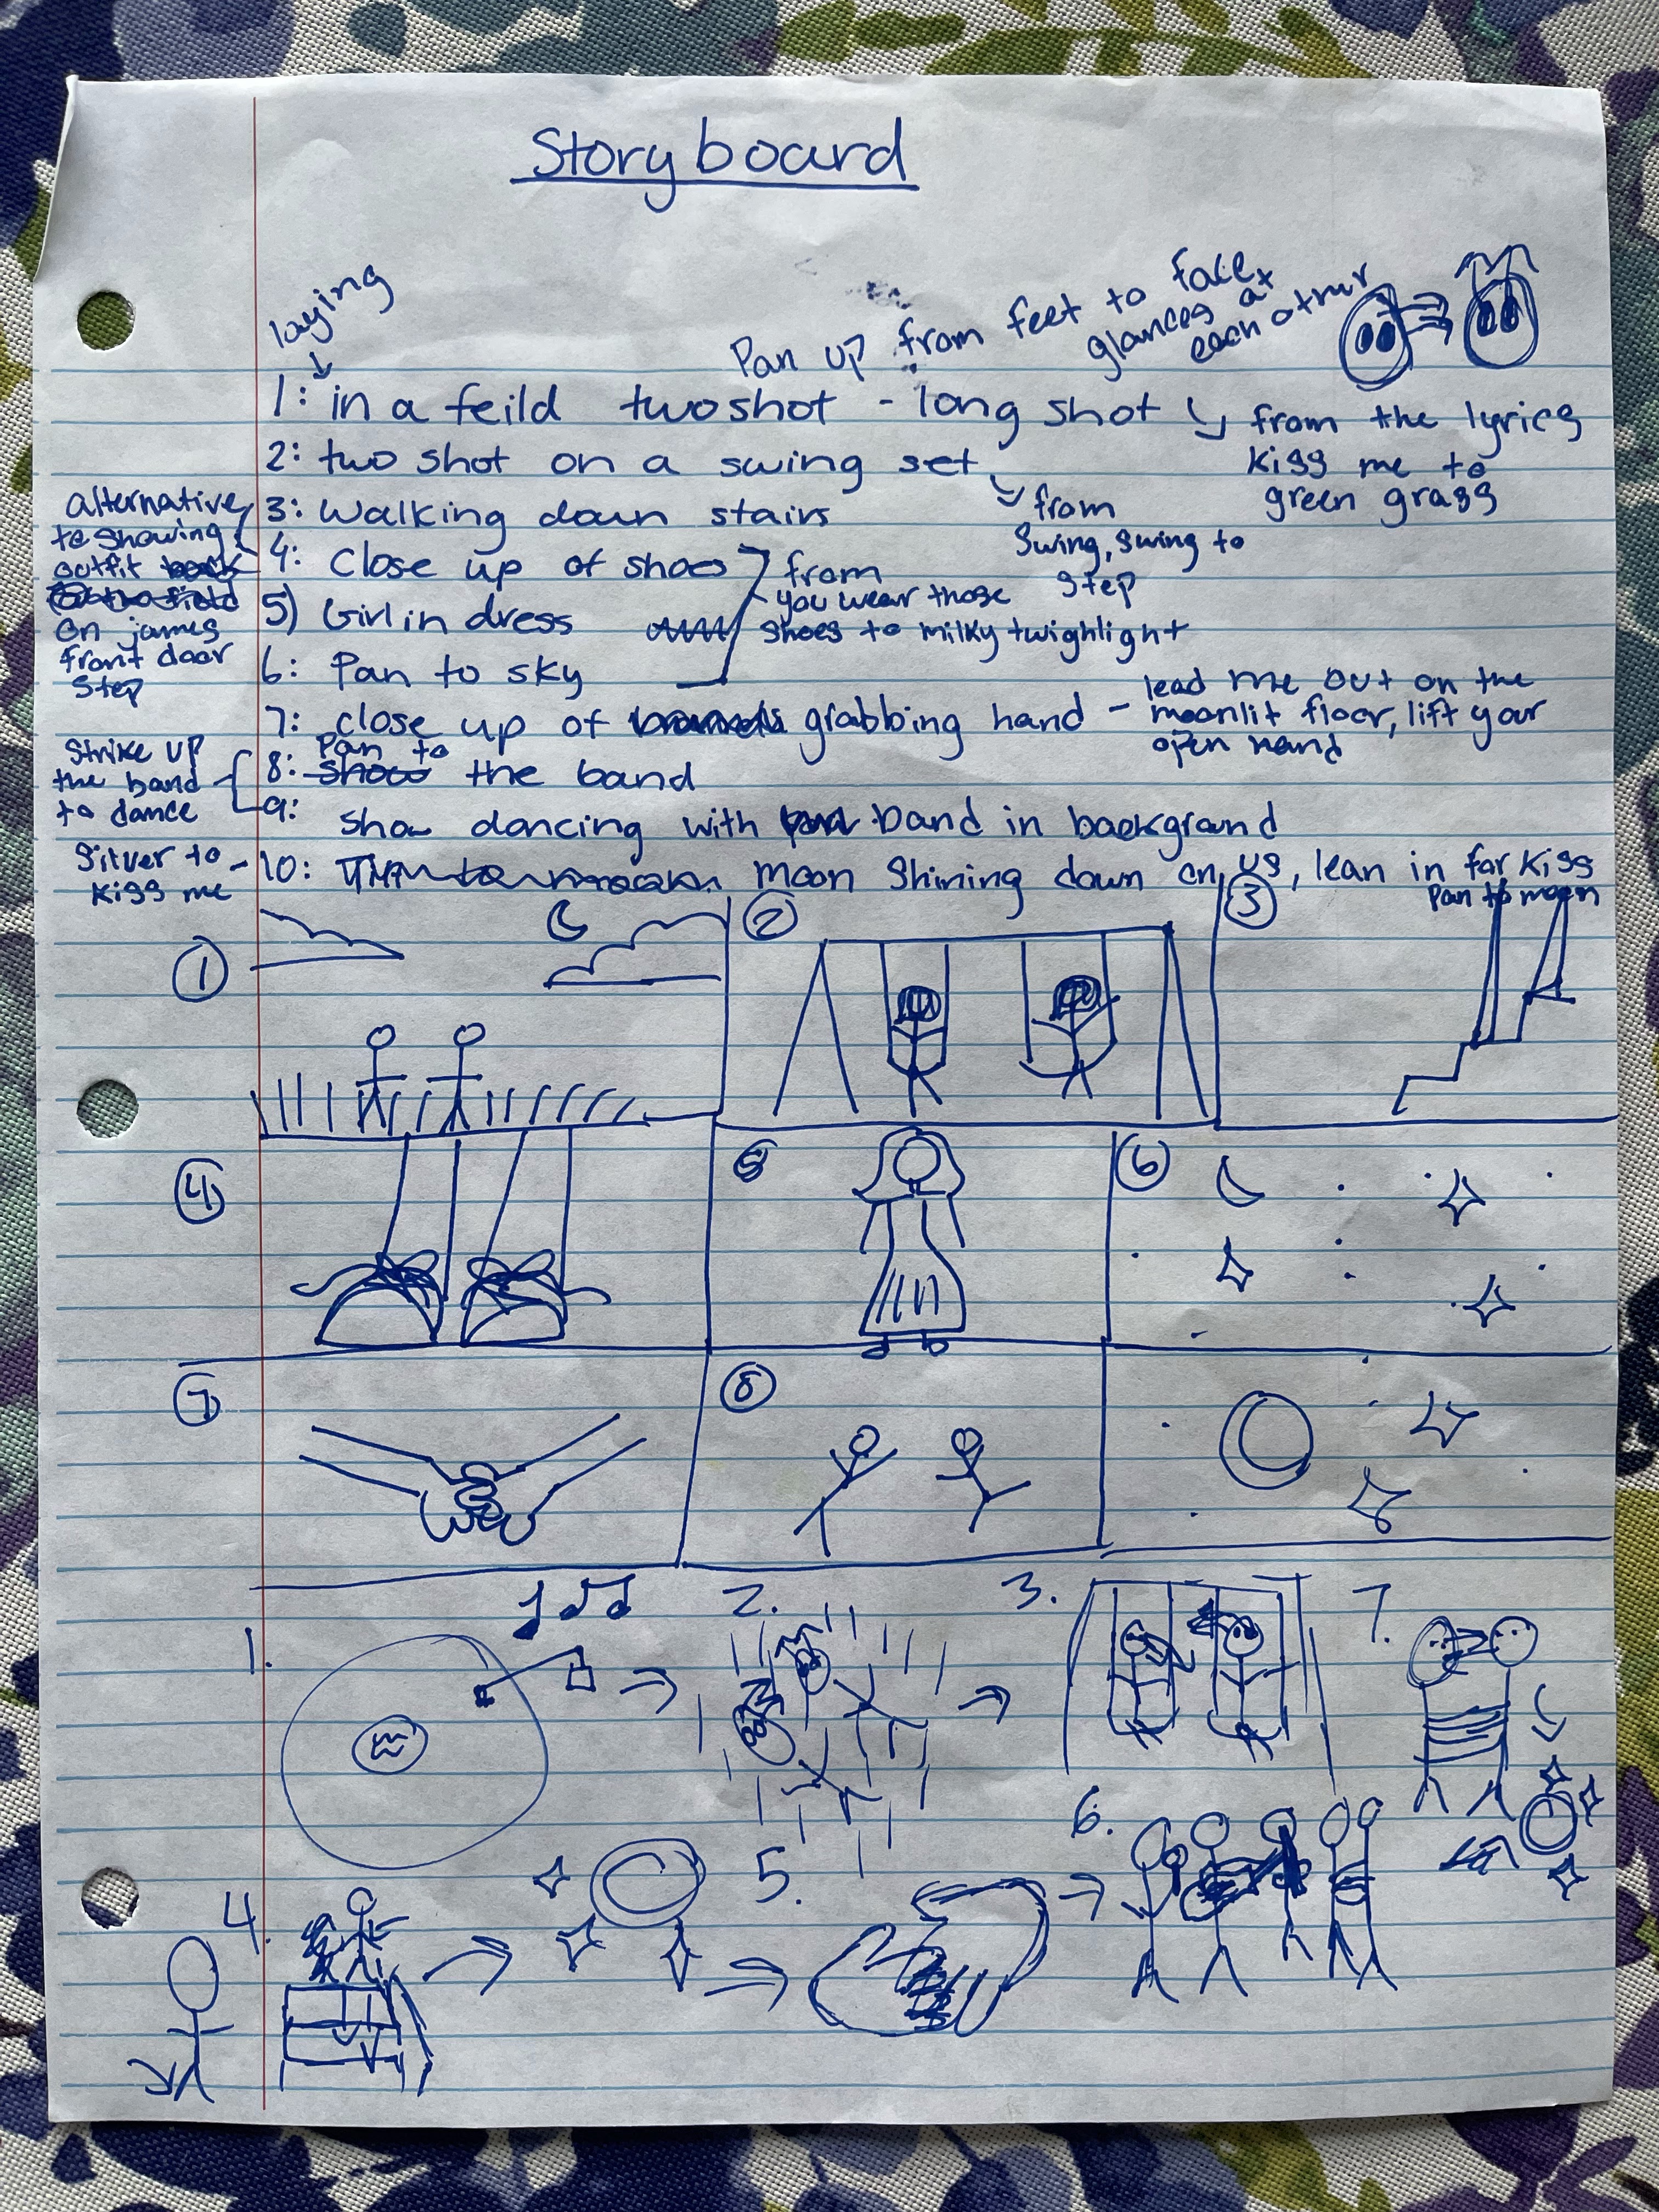 Storyboard
laying
Pan up from feet to face,
glances at
each other
1: in a feild twoshot - long shot
from the lyrics
kiss me to
green grass
2: two shot on a swing set
from
Swing, swing to
step
alternative
to showing
outfit back
to the field
on james
front door
step
3: Walking down stairs
4: Close up of shoes
5) Girl in dress
6: Pan to sky
from
you wear those
shoes to milky twighlight
7: close up of grabbing hand -
lead me out on the
moonlit floor, lift your
open hand
Strike up
the band
to dance
Pan to
8: show the band
9: show dancing with band in background
Silver to
kiss me
- 10: moon shining down on us, lean in for kiss
Pan to moon
1
2
3
4
5
6
7
8
1.
2.
3.
7.
6.
5.
4.